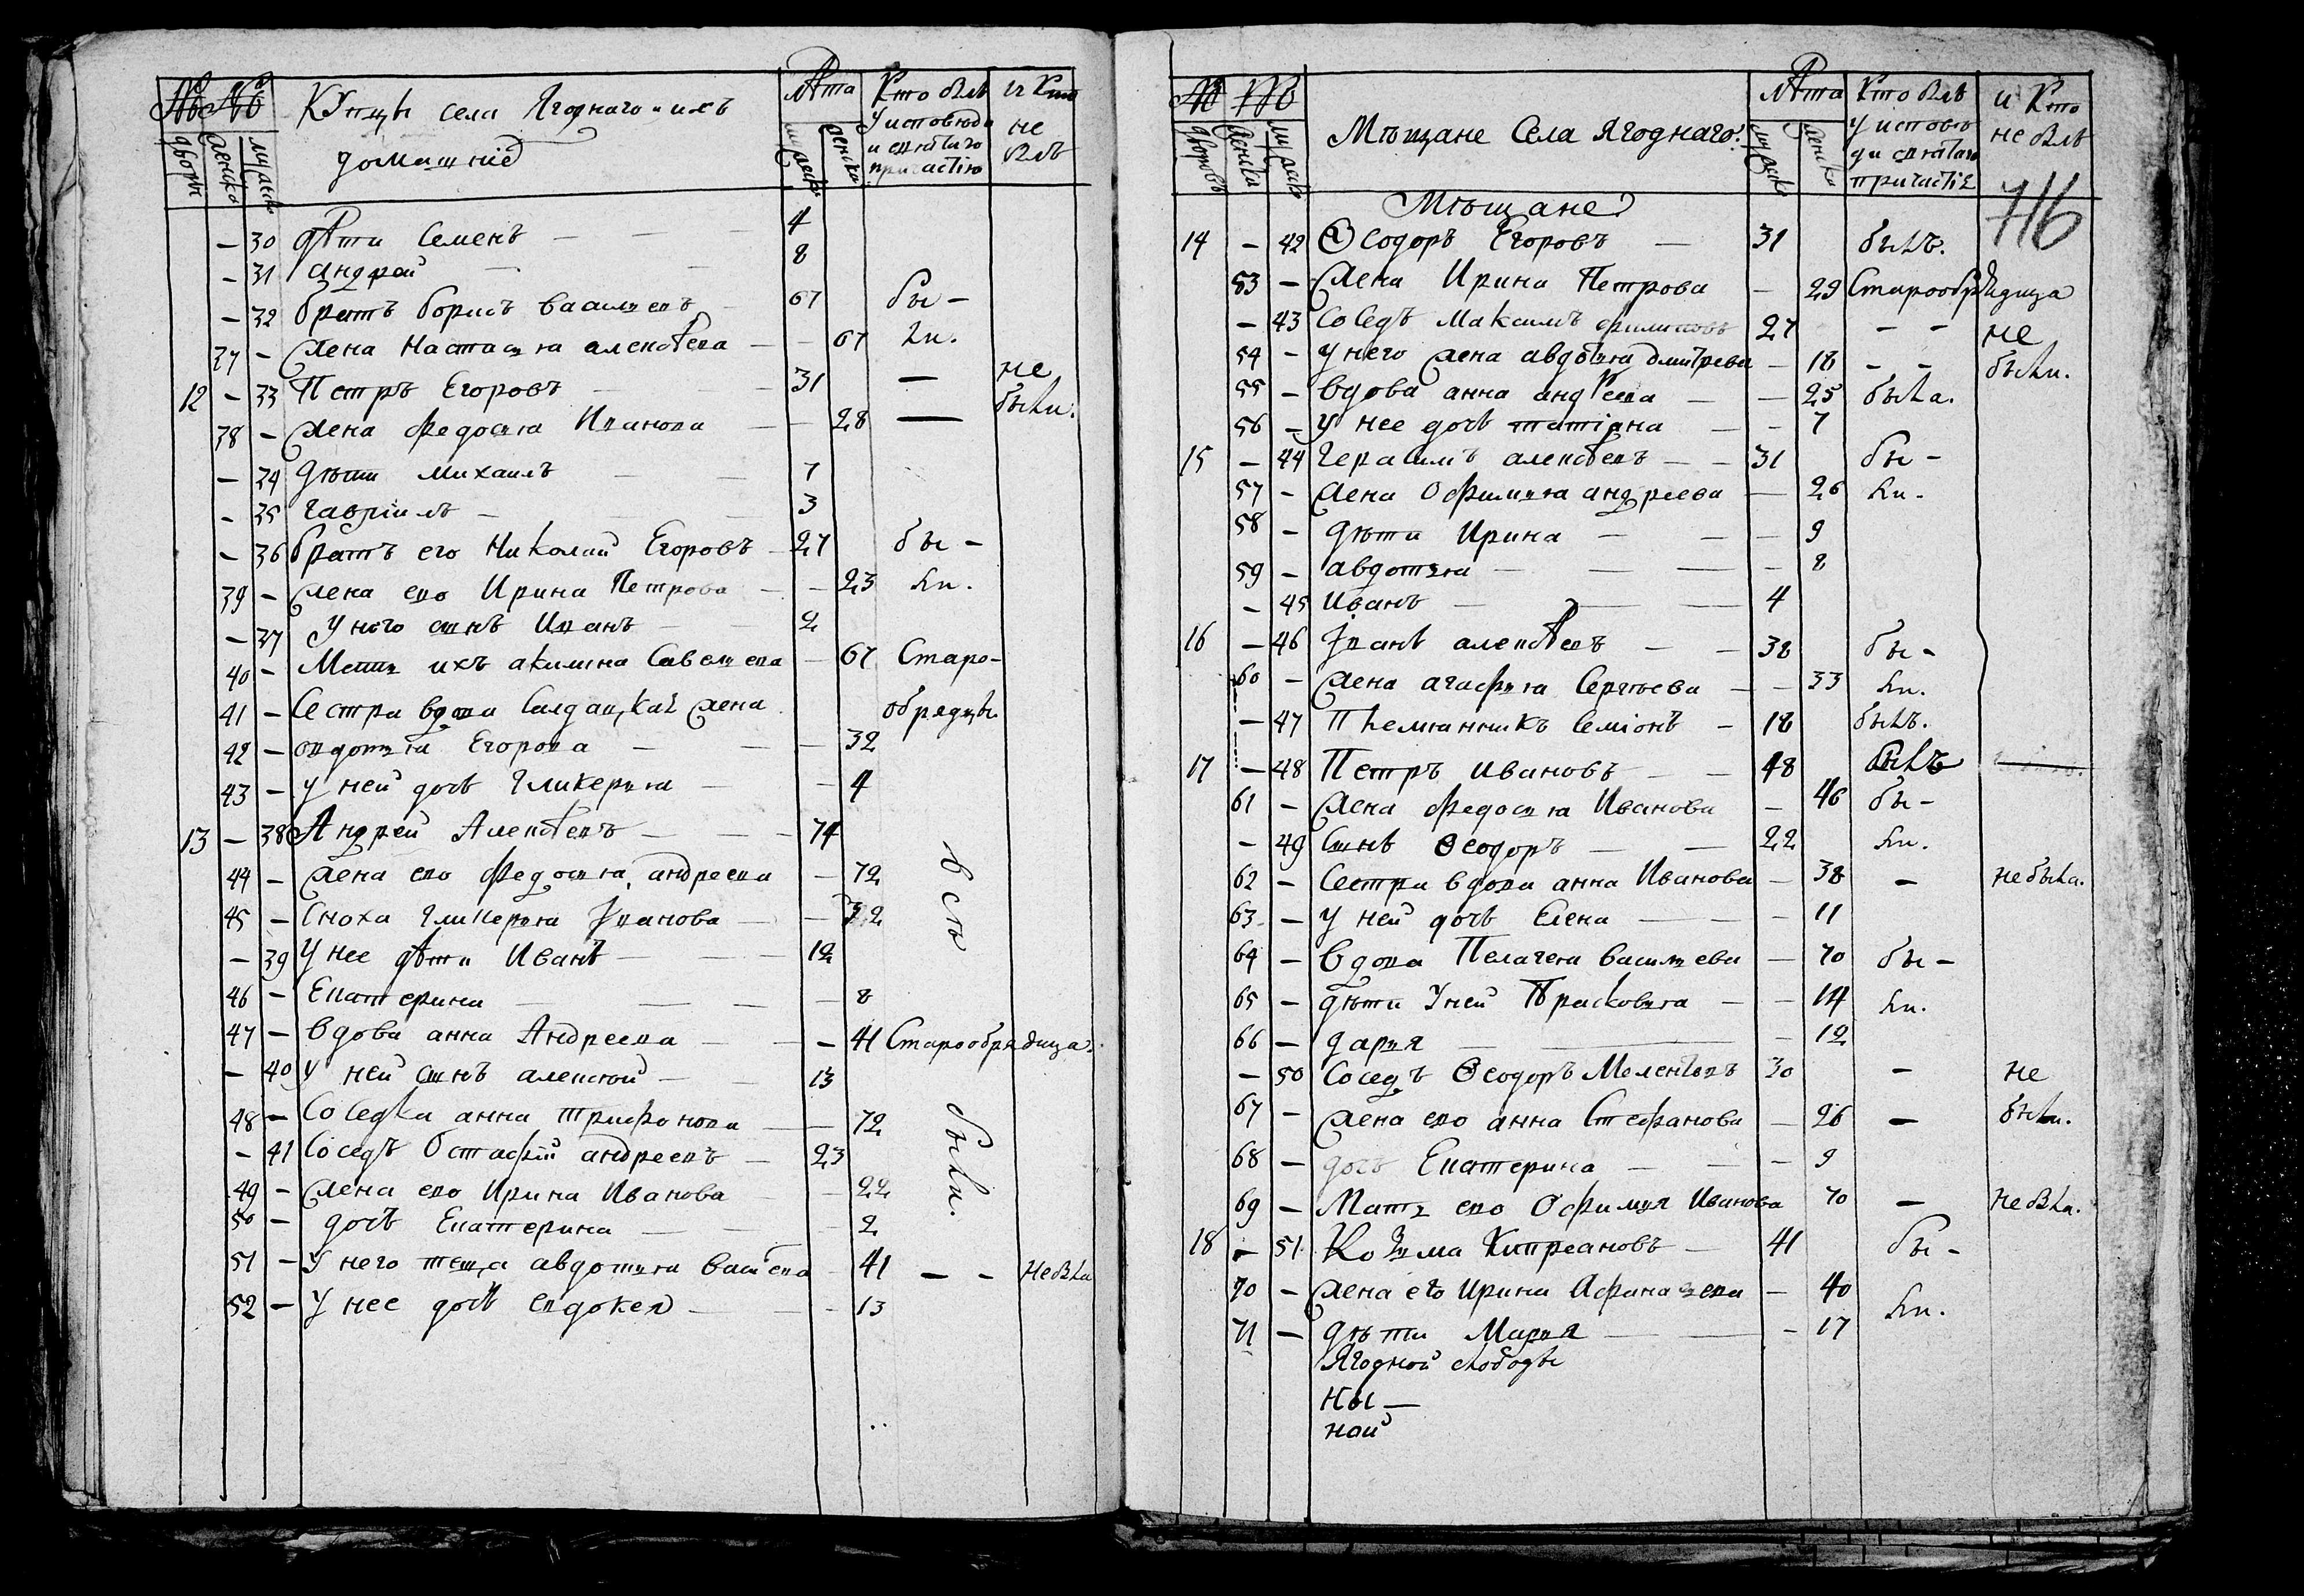 № № Купцы села Ягоднаго и ихъ домашніе Лѣта Кто былъ у исповѣди и святаго причастія и кто не былъ
дворы женска мужска мужска женска
— 30 дѣти Семенъ — 4
— 31 андрей — 8
— 32 братъ борисъ васильевъ 67 бы-
37 — жена настасья алексѣева — 67 ли.
12 — 33 Петръ Егоровъ 31 — не
38 — жена федосья Иванова — 28 — были.
— 34 дѣти михаилъ 7
— 35 гавріилъ — 3
— 36 братъ его Николай Егоровъ 27 бы-
39 — жена ево Ирина Петрова — 23 ли.
— 37 у него сынъ Иванъ 2
40 — Мать ихъ акилина Савельева — 67 Старо-
41 — Сестра вдова Салдацкая жена обрядцы.
42 — овдотья Егорова — 32
43 — у ней дочь Гликерья — 4
13 — 38 Андрей Алексѣевъ — 74
44 — жена ево федосья андреева — 72 всѣ
45 — Сноха Гликерья Іванова — 32
— 39 у нее дѣти Иванъ 12
46 — Екатерина — 8
47 — Вдова анна Андреева — 41 Старообрядица.
— 40 у ней сынъ алексей — 13
48 — Соседка анна трифонова — 72 были.
— 41 Соседъ Остафій андреевъ — 23
49 — жена ево Ирина Иванова — 22
50 — дочь Екатерина — 2
51 — У него теща авдотья васильева 41 — — не была
52 — У нее дочь евдокея — 13
№ № Мѣщане Села Ягоднаго. Лѣта Кто былъ у исповѣди святаго причастія и Кто не былъ
дворовъ женска мужска мужска женска
716
Мѣщане
14 — 42 Ѳеодоръ Егоровъ — 31 былъ.
53 — жена Ирина Петрова — 29 Старообрядица
— 43 Соседъ Максимъ филиповъ 27 — — не
54 — у него жена авдотья дмитрева — 18 — — были.
55 — вдова анна андреева — 25 была.
56 — у нее дочь татіяна — 7
15 — 44 Герасимъ алексѣевъ — 31 бы-
57 — жена Офимья андреева — 26 ли.
58 — дѣти Ирина — 9
59 — авдотья — 8
— 45 Иванъ — 4
16 — 46 Іванъ алексѣевъ — 38 бы-
60 — жена агафья Сергѣева — 33 ли.
— 47 Племянникъ Семіонъ — 18 былъ.
17 — 48 Петръ Ивановъ — 48 былъ
61 — жена федосья Иванова — 46 бы-
— 49 Сынъ Ѳеодоръ — 22 ли.
62 — Сестра вдова анна Иванова — 38 — не была.
63 — у ней дочь Елена — 11
64 — Вдова Пелагея васильева — 70 бы-
65 — дѣти У ней Прасковья — 14 ли.
66 — дарья — 12
— 50 Соседъ Ѳеодоръ Мелентьевъ 30 — не
67 — жена ево анна Стефанова — 26 — были.
68 — дочь Екатерина — 9
69 — Мать ево Офимья Иванова 70 — не была.
18 — 51 Козьма Кипреановъ — 41 бы-
70 — жена его Ирина Афанасьева — 40 ли.
71 — дѣти Марья — 17
Ягодной слободы
ны —
ной